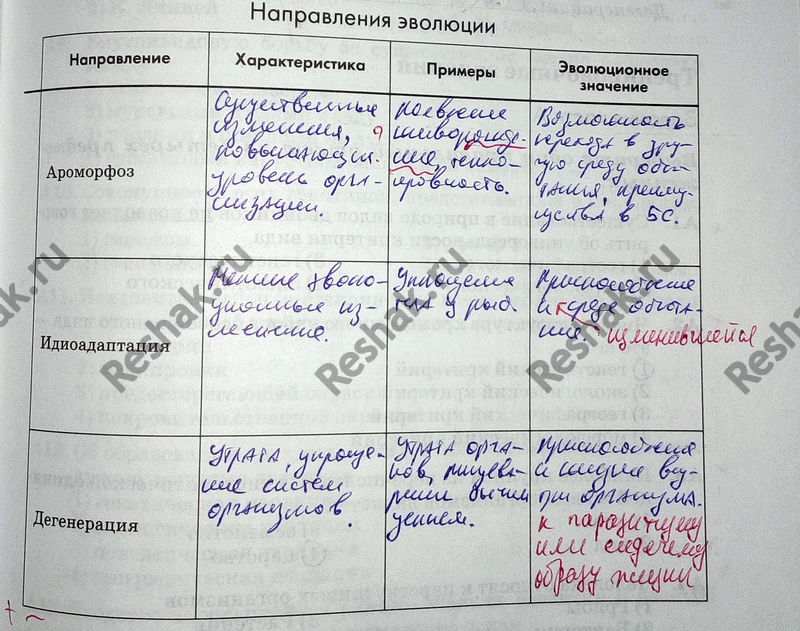 Направления эволюции
Направление
Характеристика
Примеры
Эволюционное
значение
Ароморфоз
Существенные
изменения,
повышающи
уровень орга-
низации.
живорожде-
ние, тепло-
кровность.
Возможность
перехода в дру-
гую среду обит-
ания, преиму-
щества в БС.
Идиоадаптация
Мелкие эволю-
ционные из-
менения.
Уплощение
тела у рыб.
Приспособление
к среде обита-
ния.
изменившейся
Дегенерация
Утрата, упроще-
ние систем
организмов.
Утрата орга-
нов, пищева-
рения бычьим
цепнем.
приспособление
к жизни вну-
три организма.
к паразитизму
или сидячему
образу жизни
+ ~
Reshak.ru
Reshak.ru
Reshak.ru
Reshak.ru